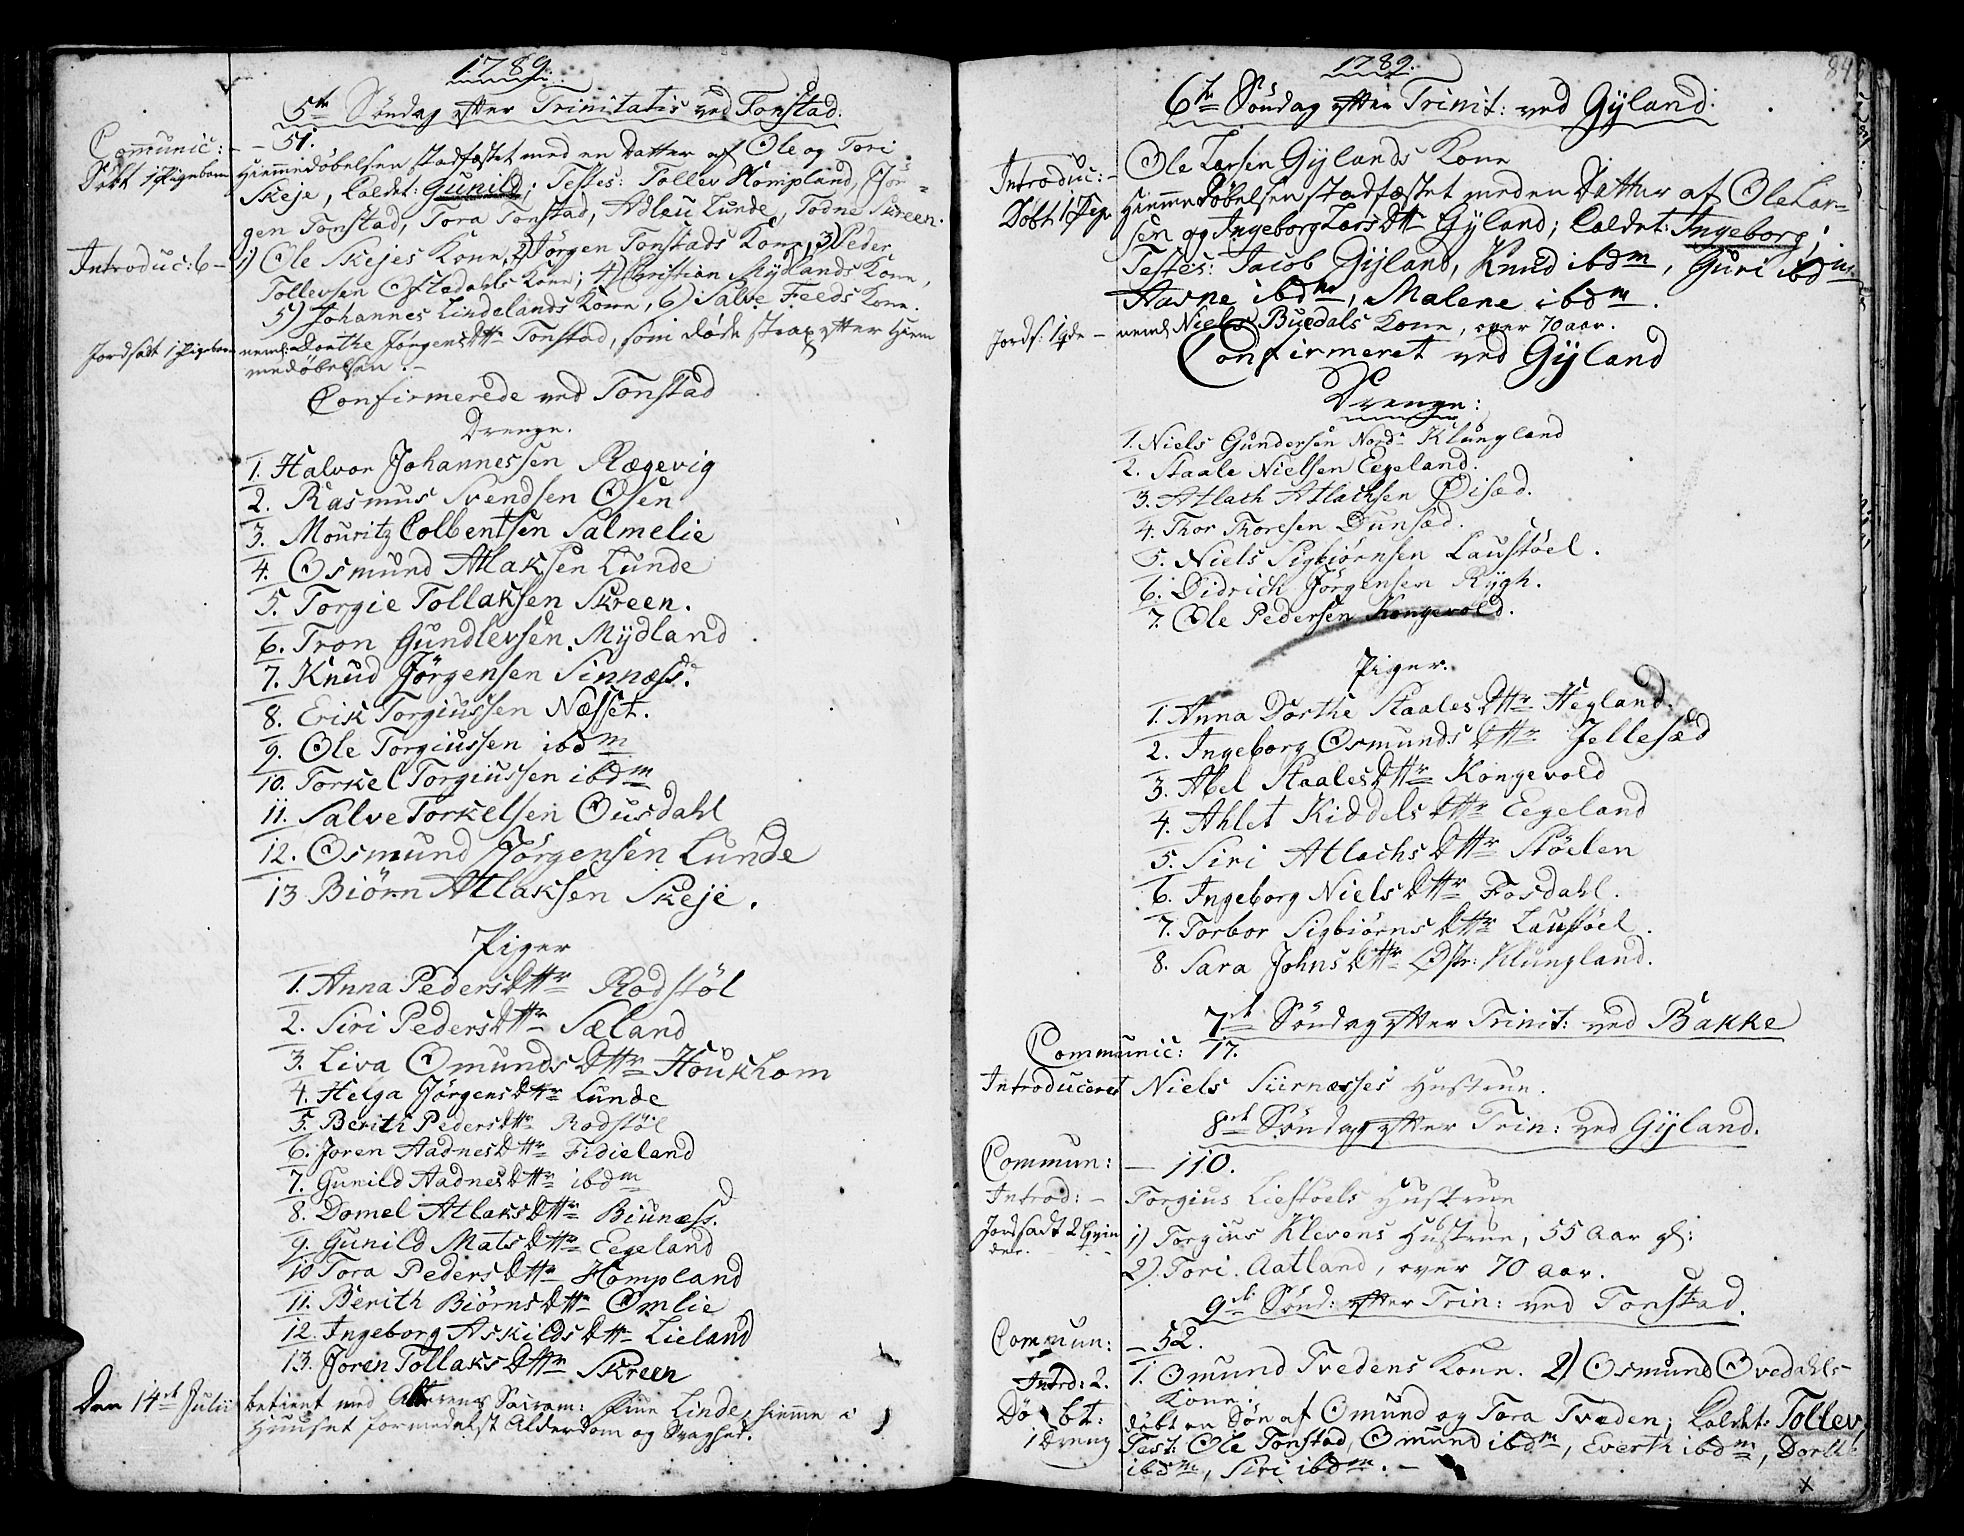 1789.
5te Søndag efter Trinitatis ved Tonstad.
Communic: - 51.
Døbt 1 Pigebarn Hiemmedøbelsen stadfæstet med en Datter af Ole og Tori
Skeje, kaldet: Gunild; Testes: Tollev Hompland, Jør-
gen Tonstad, Tora Tonstad, Adleu Lunde, Todne Skreen.
Introduc: 6 - 1) Ole Skejes Kone, 2) Jørgen Tonstads Kone, 3) Peder
Tollevsen Ofstedahls Kone; 4) Christian Mydlands Kone,
5) Johannes Lindelands Kone, 6) Salve Feeds Kone
Jordsatt 1 Pigebarn neml: Dorthe Jørgens Dttr Tonstad, som døde strax efter Hiem
medøbelsen. -
Confirmerede ved Tonstad
Drenge.
1. Halvor Johannessen Rægevig
2. Rasmus Svendsen Osen
3. Mouritz Colbentsen Salmelie
4. Osmund Atlaksen Lunde
5. Torgie Tollaksen Skreen.
6. Tron Gundlevsen Mydland
7. Knud Jørgensen Sinnæss.
8. Erik Torgiussen Næsset.
9. Ole Torgiussen ibdm
10. Torkel Torgiussen ibdm
11. Salve Torkelsen Ousdahl
12. Osmund Jørgensen Lunde
13 Biørn Atlaksen Skeje.
Piger
1. Anna Peders Dttr Rodstøl
2. Siri Peders Dttr Sæland
3. Liva Omunds Dttr Houkhom
4. Helga Jørgens Dttr Lunde
5. Berith Peders Dttr Rodstøl
6. Joren Aadnes Dttr Fidieland
7. Gunild Aadnes Dttr ibdm
8. Domel Atlaks Dttr Biunæss.
9. Gunild Mats Dttr Eegeland
10 Tora Peders Dttr Hompland
11. Berith Biørns Dttr Omlie
12. Ingeborg Askilds Dttr Lieland
13. Joren Tollaks Dttr Skreen
Den 14de Julii betient med Alterens Sacram: Linde, hiemme i
Huuset formedelst Alderdom og Svaghed.
1789.
84
6te Søndag efter Trinit: ved Gyland.
Introduc: - Ole Larsen Gylands Kone
Døbt 1 Pige Hiemmedøbelsen stadfæstet med en Datter af Ole Lar-
sen og Ingeborg Lars Dttr Gyland; kaldet: Ingeborg;
Testes: Jacob Gyland, Knud ibdm, Guri ibdm
Aasne ibdm, Malene ibdm.
Jords: 1 qde - neml Niels Buedals Kone, over 70 aar.
Confirmeret ved Gyland
Drenge:
1. Niels Gundersen Nord: Klungland
2. Staale Nielsen Eegeland.
3. Atlach Atlachsen Øisæd.
4. Thor Thoresen Dunsæd.
5. Niels Sigbiørnsen Laustøel.
6. Didrich Jørgensen Rygh.
7. Ole Pedersen Kongevold.
Piger.
1. Anna Dorthe Staales Dttr Hegland.
2. Ingeborg Osmunds Dttr Jellesæd
3. Abel Staales Dttr Kongevold
4. Ahlet Kiddels Dttr Eegeland
5. Siri Atlachs Dttr Støelen
6. Ingeborg Niels Dttr Fosdahl.
7. Torbor Sigbiørns Dttr Laustøel.
8. Sara Johns Dttr Østr: Klungland.
7de Søndag efter Trinit: ved Bakke
Communic: 17.
Introduceret Niels Siirnæsses Hustrue.
8de Søndag efter Trin: ved Gyland.
Commun: - 110.
Introd: - Torgius Liestøels Hustrue
Jordsadt 2 Qvin 1) Torgius Klevens Hustrue, 55 aar gl:
der. - 2). Tori Aatland, over 70 aar.
9de Sønd: efter Trin: ved Tonstad.
Commun: - 52.
Introd: 2. 1. Omund Tvedens Kone. 2) Osmund Ovedahls
Kone;
Døbt: døbt en Søn af Omund og Tora Tveden; kaldet: Tollev
1 Dreng Test: Ole Tonstad, Omund ibdm, Evert ibdm, Dorthe
ibdm, Siri ibdm. -
x